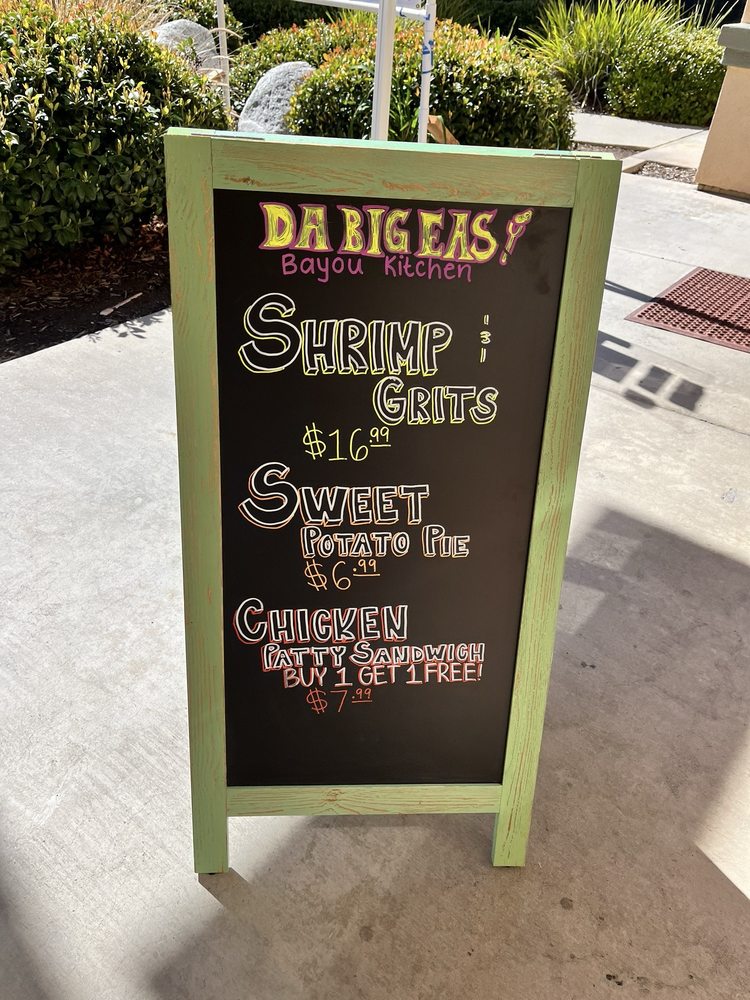 DA BIG EASY
Bayou Kitchen
SHRIMP &
GRITS
$16.99
SWEET
POTATO PIE
$6.99
CHICKEN
PATTY SANDWICH
BUY 1 GET 1 FREE!
$7.99